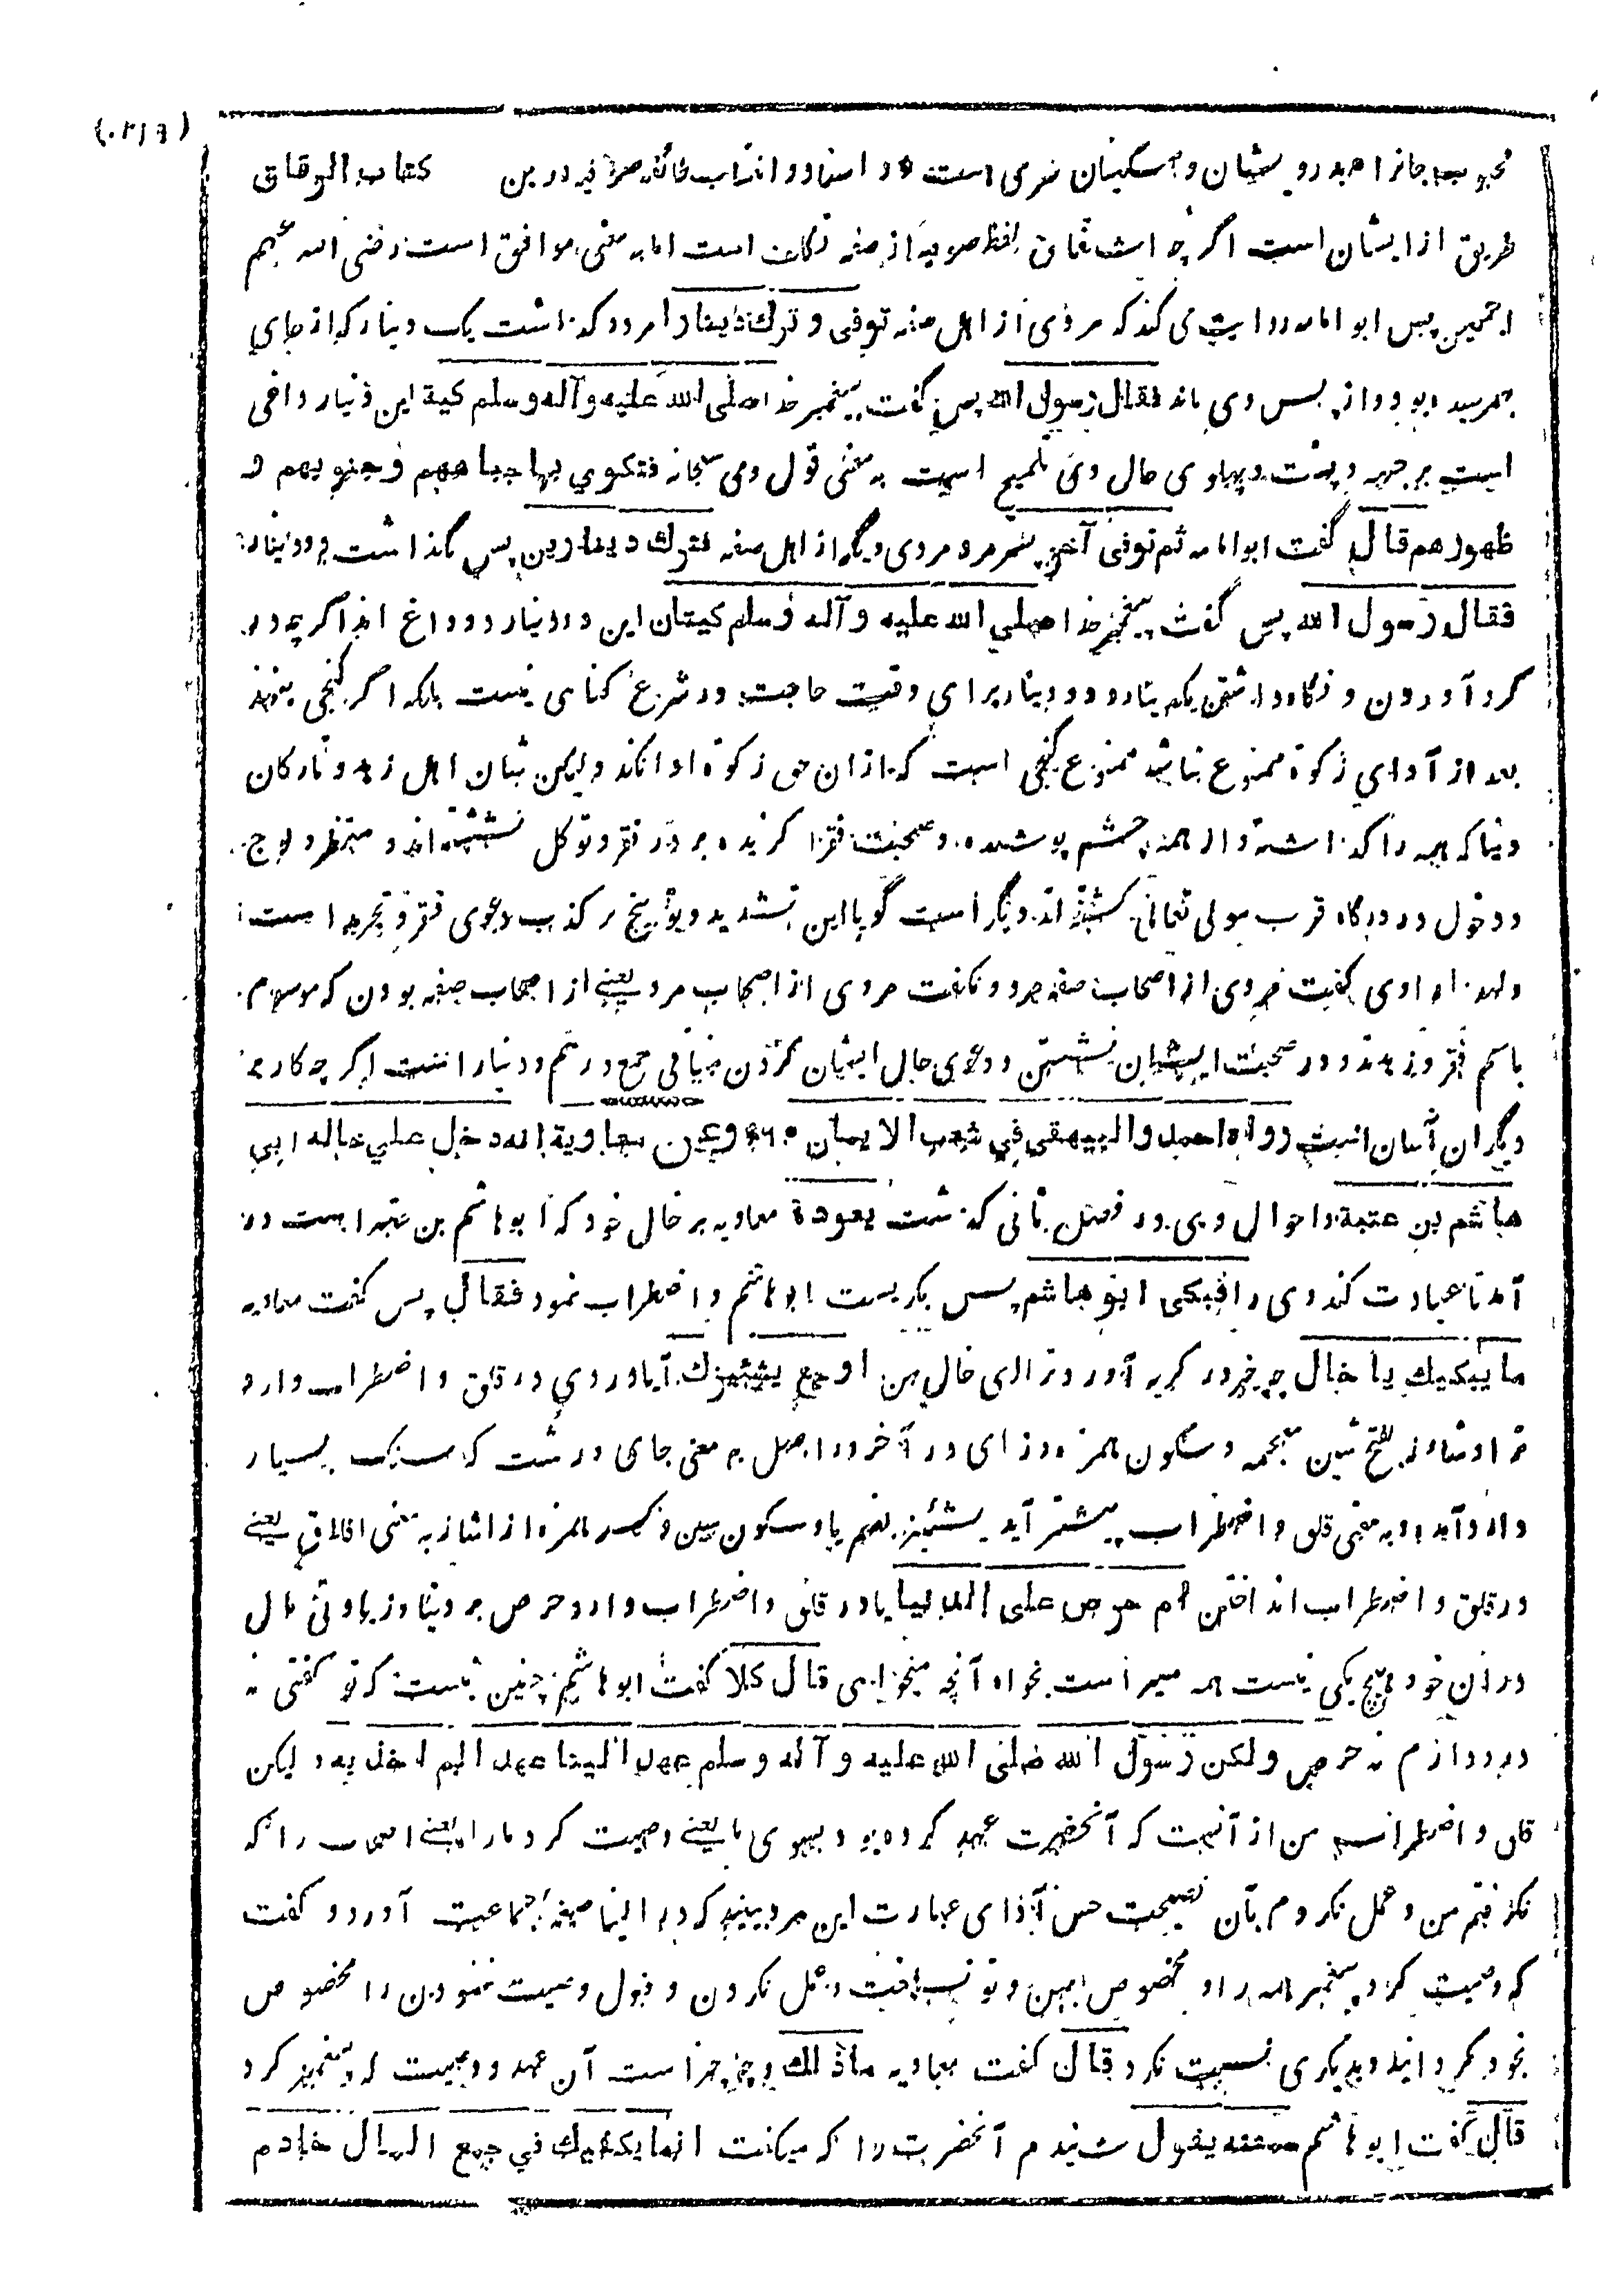 (۲۱۶)
کتاب الرقاق
طریق از ایشان است اگرچه اشتقاق لفظ صوفیه از صفه تکلف است اما به معنی موافق است رضی الله عنهم
اجمعین پس ابو امامه روایت می کند که مردی از اهل صفه توفی و ترك دینارا مرد و گذاشت یک دینار که از جای
بهم رسیده بود و از پس وی ماند فقال رسول الله پس گفت پیغمبر خدا صلى الله عليه وآله وسلم كية این دینار داغی
است بر جبهه و پشت و پهلوی حال وی تلمیح است به معنی قول وی سبحانه فتكوي بها جباههم وجنوبهم و
ظهورهم قال گفت ابو امامه ثم توفى آخر پستر مرد مردی دیگر از اهل صفه فترك دينارين پس گذاشت دو دینار
فقال رسول الله پس گفت پیغمبر خدا صلي الله عليه وآله وسلم كيتان این دو دینار دو داغ اند اگرچه در
گرد آوردن و نگاه داشتن یک دینار و دو دینار برای وقت حاجت در شرع گناهی نیست بلکه اگر گنجی بنهند
بعد از ادای زکوة ممنوع نباشد ممنوع گنجی است که ازان حق زکوة ادا نکند ولیکن شان اهل زهد و تارکان
دنیا که همه را گذاشته و از همه چشم پوشیده و صحبت فقرا گزیده بر در فقر و توکل نشسته اند و منتظر ولوج
و دخول در درگاه قرب مولی تعالی گشته اند دیگر است گویا این تشدید و توبیخ بر کذب دعوی فقر و تجرید است
ولهذا راوی گفت مردی از اصحاب صفه مرد و نگفت مردی از اصحاب مرد یعنے از اصحاب صفه بودن که موسوم
باسم فقر و زهد و در صحبت ایشان نشستن و دعوی حال ایشان کردن منافی جمع درهم و دینار است اگرچه کار بر
دیگران آسان است رواه احمد والبيهقي في شعب الايمان وعن معاوية انه دخل علي خاله ابي
هاشم بن عتبة و احوال وی در فصل ثانی گذشت يعوده معاویه بر خال خود که ابو هاشم بن عتبه است در
آمد تا عیادت کند وی را فبكى ابو هاشم پس بگریست ابو هاشم و اضطراب نمود فقال پس گفت معاویه
ما يبكيك يا خال چه چیز در گریه آورد ترا ای خال من اوجع يشئزك آیا دردی در قلق و اضطراب دارد
ترا و شاز بفتح شین معجمه و سکون همزه و زای در آخر در اصل به معنی جای درشت که سنگ بسیار
دارد آمده و به معنی قلق و اضطراب بیشتر آید یشئز بضم یا و سکون شین و کسر همزه از اشاز به معنی اقلاق یعنے
در قلق و اضطراب انداختن ام حرص على الدنيا یا در قلق و اضطراب دارد حرص بر دنیا و زیادتی مال
در آن خود هیچ یکی نیست همه میسر است بخواه آنچه میخواهی قال كلا گفت ابو هاشم چنین نیست که تو گفتی نه
درد دارم نه حرص ولكن رسول الله صلى الله عليه وآله وسلم عهد الينا عهدا لم اخذ به ولیکن
قلق و اضطراب من از آنست که آنحضرت عهد کرده بود بسوی ما یعنے وصیت کرد ما را یعنے اصحاب را که
نگرفتم من و عمل نکردم بآن نصیحت حسن ادای عبارت این مرد ببینید که در الینا صیغه جماعت آورد و گفت
که وصیت کرد پیغمبر همه را و مخصوص بمن و تو نساخت و عمل نکردن و قبول وصیت ننمودن را مخصوص
بخود گردانید و بدیگری نسبت نکرد قال گفت معاویه ما ذلك و چه چیز است آن عهد و وصیت که پیغمبر کرد
قال گفت ابو هاشم سمعته يقول شنیدم آنحضرت را که میگفت انما يكفيك في جمع المال خادم